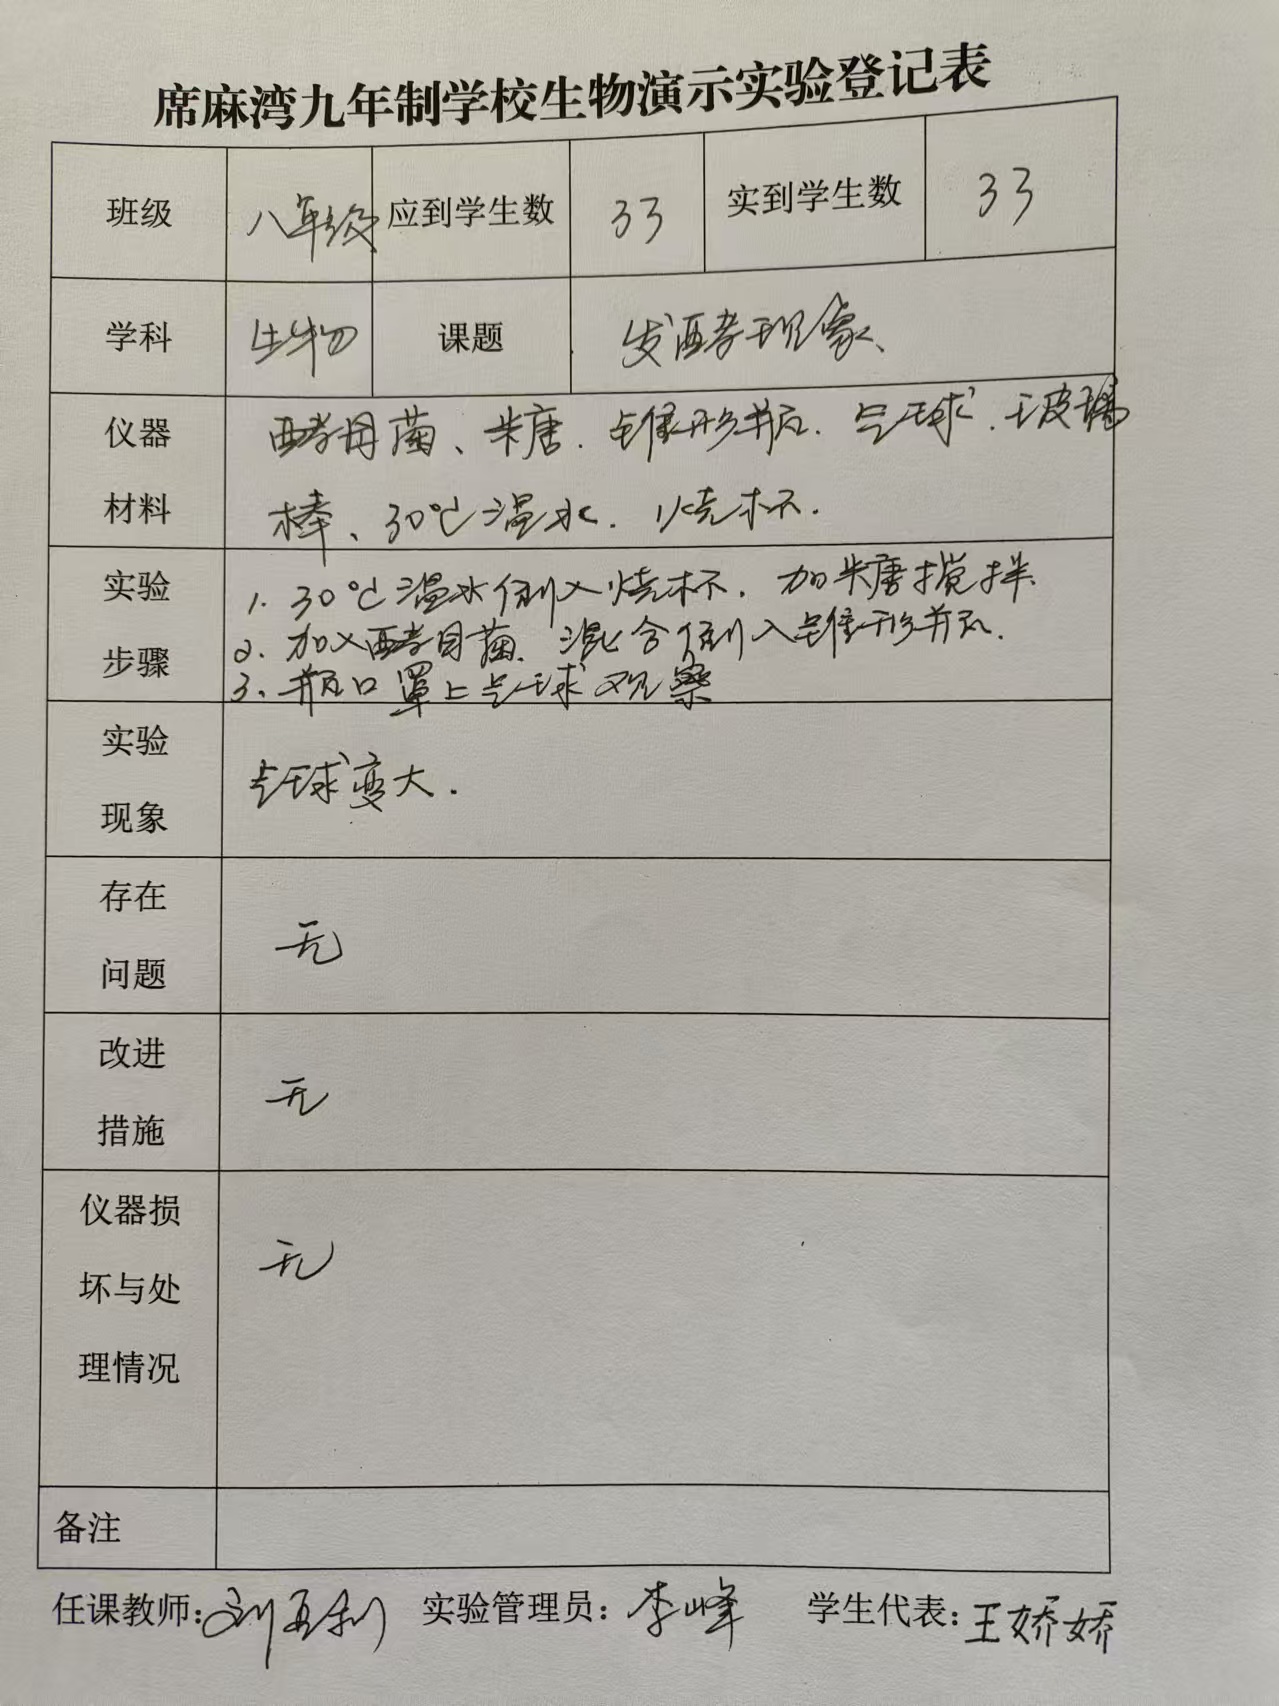 席麻湾九年制学校生物演示实验登记表
班级 八年级 应到学生数 33 实到学生数 33
学科 生物 课题 发酵现象、
仪器 酵母菌、米糖.锥形瓶.气球.玻璃
材料 棒、30℃温水.烧杯.
实验 1. 30℃温水倒入烧杯.加米糖搅拌.
2. 加入酵母菌.混合倒入锥形瓶.
步骤 3、瓶口罩上气球观察
实验
气球变大.
现象
存在
无
问题
改进
无
措施
仪器损
无
坏与处
理情况
备注
任课教师: 实验管理员:李峰 学生代表:王娇娇